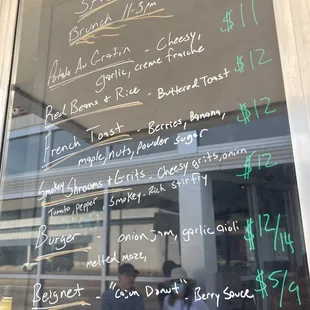 Brunch 11-3pm
Potato Au Gratin - Cheesy, $11
garlic, creme fraiche
Red Beans & Rice - Buttered Toast $12
French Toast - Berries, Banana, $12
maple, nuts, powder sugar
Smokey Shrooms & Grits - Cheesy grits, onion $12
Tomato, Pepper Smokey - Rich stirfry
Burger onion jam, garlic aioli $12/14
melted mozz,
Beignet - "Cajun Donut" - Berry Sauce $5/9